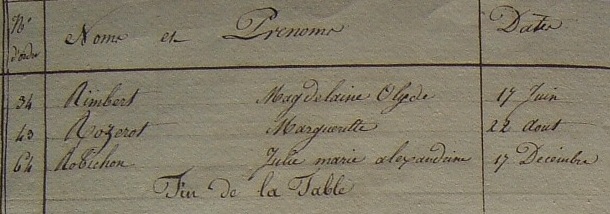 N° d'ordre Noms et Prenoms Dates
34 Rimbert Magdelaine 17 Juin
43 Rozerot Margueritte 22 aout
64 Robichon Julie marie alexandrine 17 Décembre
Fin de la Table